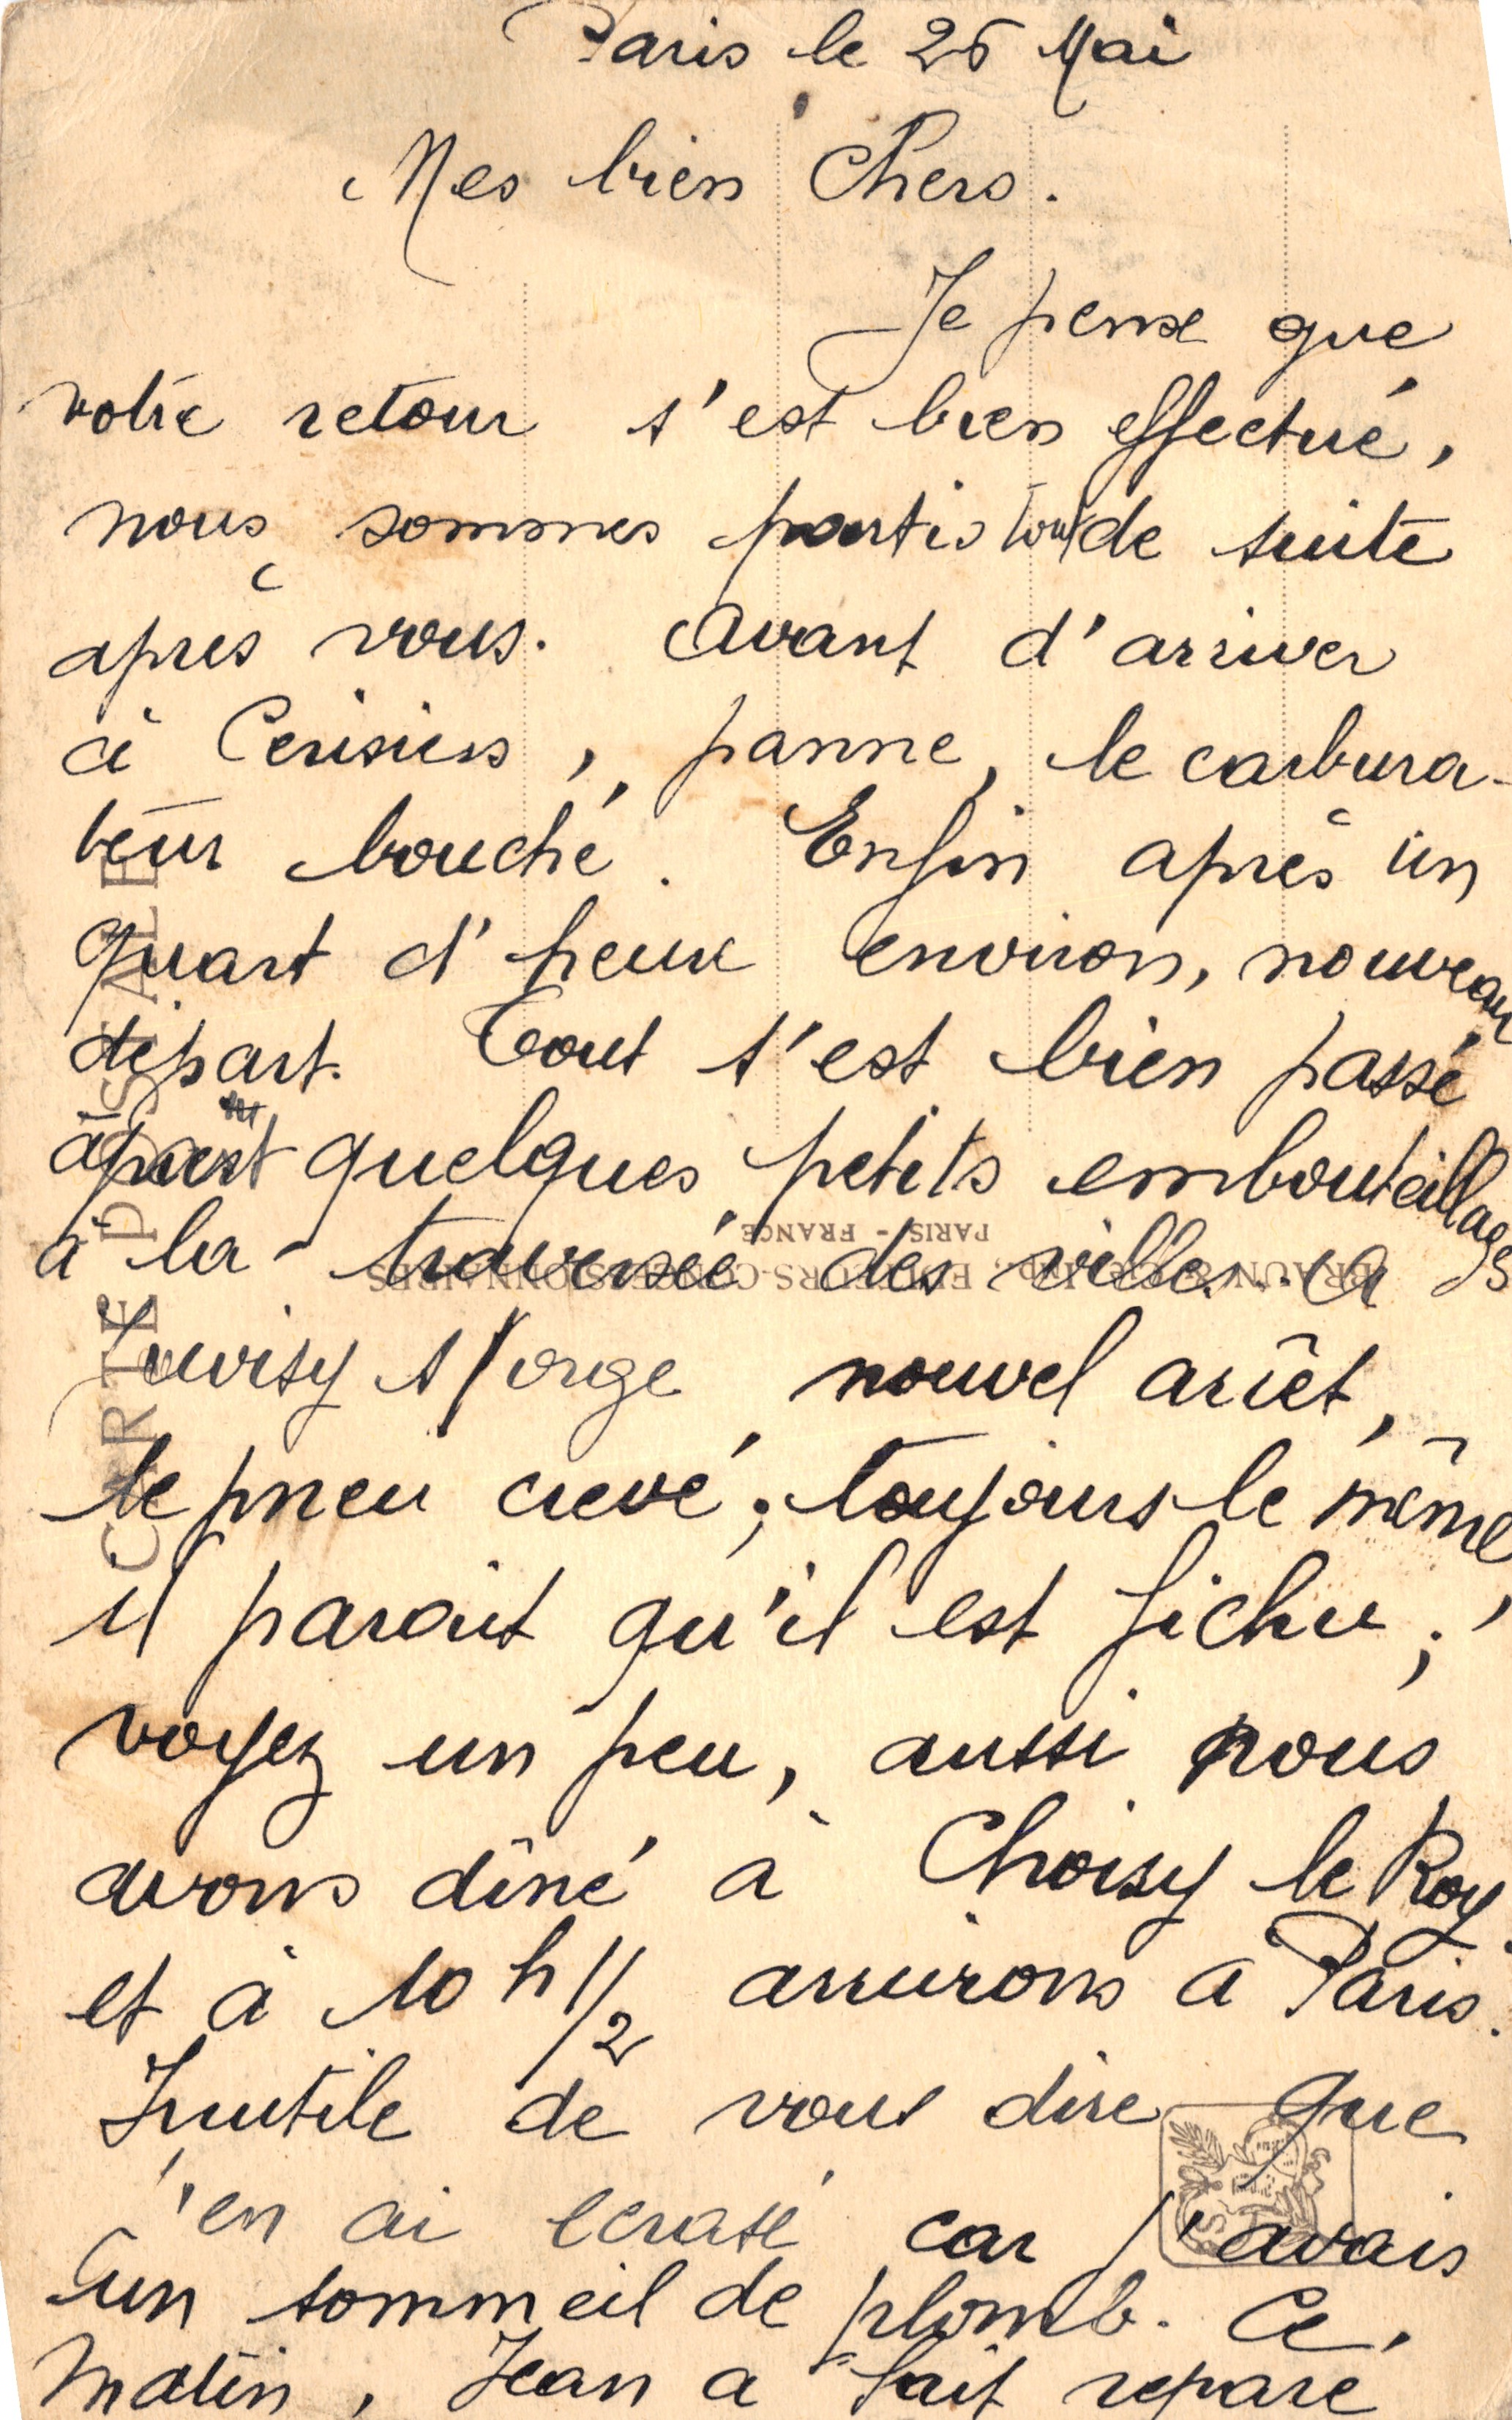 Paris le 26 Mai
Mes bien Chers.
Je pense que
votre retour s'est bien effectué,
nous sommes partis tout de suite
après vous. Avant d'arriver
à Cerisiers, panne, le carbura-
teur bouché. Enfin après un
quart d'heure environ, nouveau
départ. Tout s'est bien passé
àpart quelques petits embouteillages
à la traversée des villes. A
Juvisy s/orge nouvel arrêt,
le pneu crevé; toujours le même
il parait qu'il est fichu;
voyez un peu, aussi nous
avons dîné à Choisy le Roy.
et à 10 h 1/2 arrivions à Paris.
Inutile de vous dire que
j'en ai ecrasé car j'avais
un sommeil de plomb. Ce
matin, Jean a fait réparé
CARTE POSTALE
BRAUN & Cie, IMP., EDITEURS-CONCESSIONNAIRES
PARIS - FRANCE